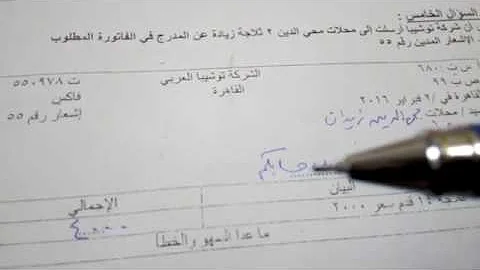 السؤال الخامس :
أن شركة توشيبا أرسلت إلى محلات محي الدين ٢ ثلاجة زيادة عن المدرج في الفاتورة المطلوب
الإشعار المدين رقم ٥٥
س ت : ٦٨٠
الشركة توشيبا العربي
ت ٥٥٠٩٧٨
ص ب ٩٩
القاهرة
فاكس
القاهرة في /٢ فبراير ٢٠١٦
إشعار رقم ٥٥
محلات محي الدين زيدان
حسابكم
البيان
الإجمالي
١٤ قدم سعر ٢٠٠٠
٤٠٠٠
ما عدا السهو والخطأ